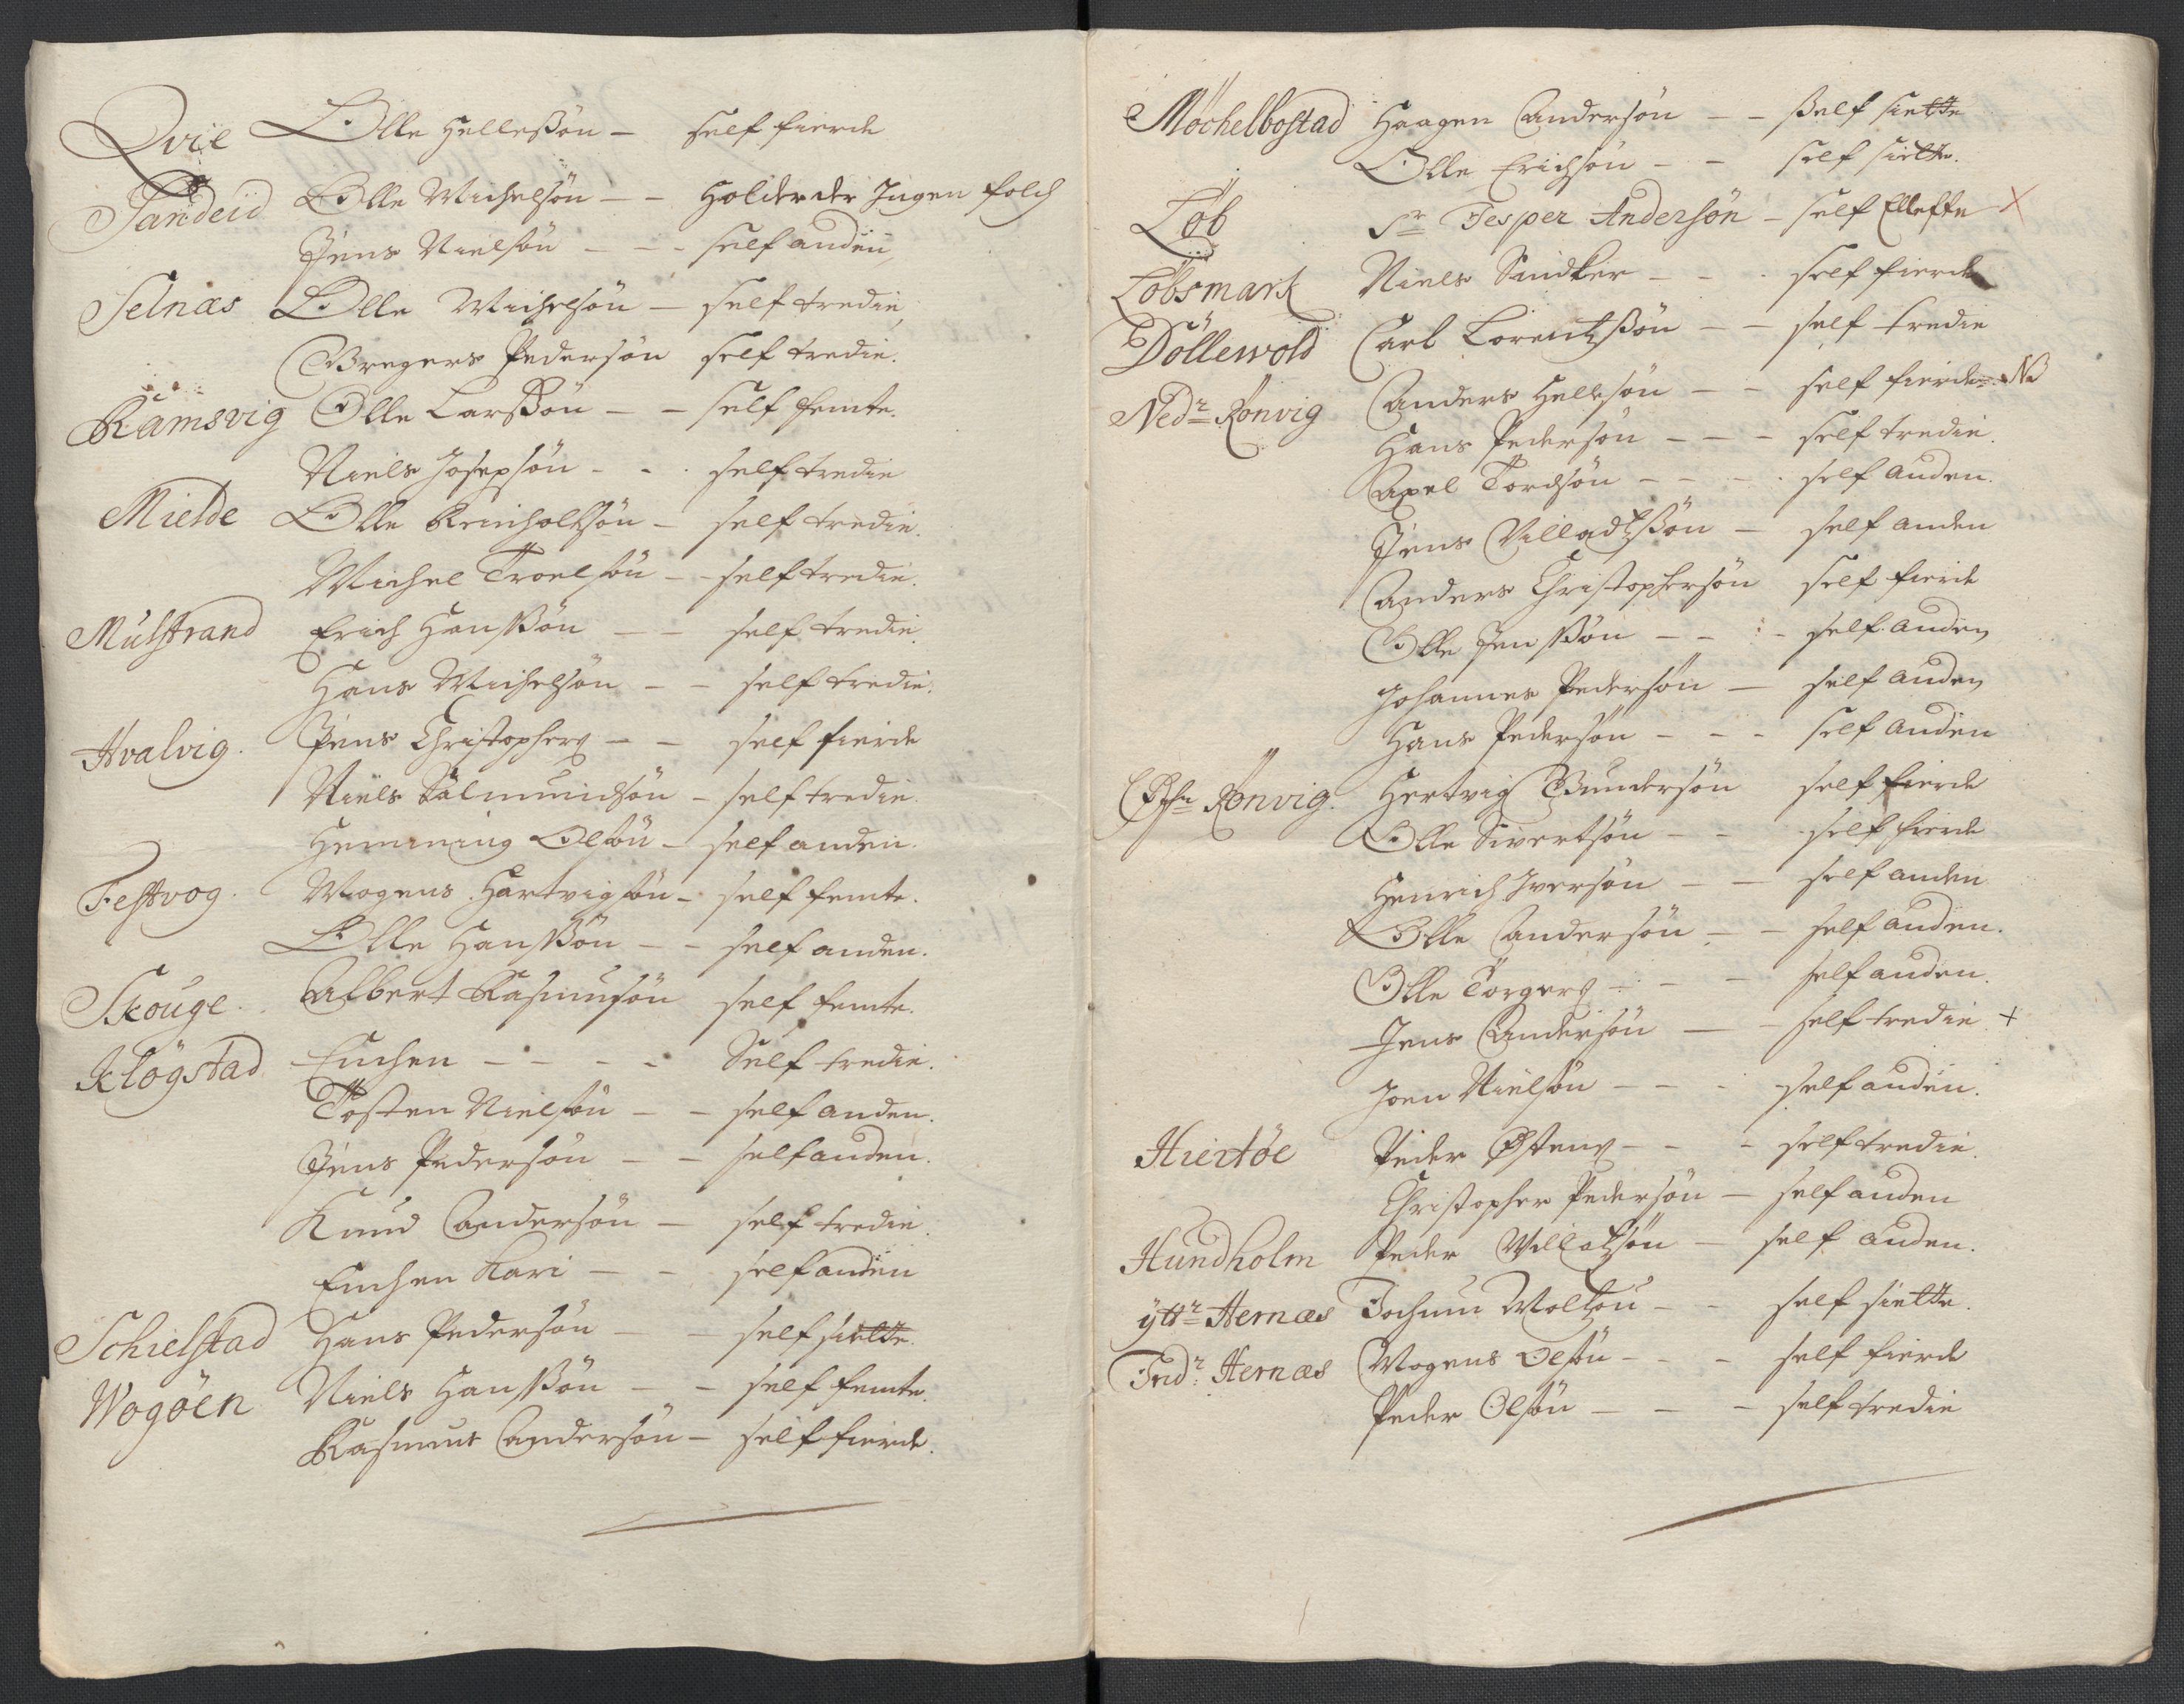 Qvie Olle Hellessøn — self fierde
Sandeid Olle Michelsøn — — Holder der Ingen folch
Jens Nielsøn — — - self anden
Selnæs Olle Michelsøn — self tredie
Gregers Pedersøn self tredie.
Ramsvig Olle Larssøn — — self femte.
Niels Josepsøn - - . self tredie
Mielde Olle Reinholtsøn — self tredie.
Michel Troelsøn — - self tredie.
Mulstrand Erich Hanssøn — — self tredie.
Hans Michelsøn — — self tredie.
Hvalvig. Jens Christophers — — self fierde
Niels Salmundsøn — self tredie.
Hemming Olsøn — self anden.
Festvog. Mogens Hartvigsøn — self femte.
Olle Hanssøn — — self anden.
Skouge. Albert Rasmusøn self femte.
Kløgstad Enchen — — — — Self tredie.
Tosten Nielsøn — — self anden.
Jens Pedersøn — — self anden.
Knud Andersøn — self tredie.
Enchen Kari — — self anden
Schielstad Hans Pedersøn — — self siette.
Wogøen Niels Hanssøn — — self femte.
Rasmus Andersøn — self fierde.
Møchelbostad Haagen Andersøn — — self siette
Olle Erichsøn — — self siette.
Løb Sr Jesper Andersøn — self Ellefte X
Løbsmark Niels Snidker — — . self fierde
Döllewold Carl Lorentzsøn — — self tredie
Nedr Rønvig Anders Hellesøn — — self fierde NB
Hans Pedersøn — — — self tredie.
Axel Tordsøn — — — . self anden.
Jens Villadtzsøn — self anden
Anders Christophersøn self fierde
Olle Jenssøn — — : - self anden
Johannes Pedersøn — self anden
Hans Pedersøn — — — self anden
Øfre Rønvig. Hertvig Gundersøn self fierde
Olle Sivertsøn — — self fierde
Henrich Iversøn — — self anden
Olle Andersøn — — self anden.
Olle Torgers — — — self anden.
Jens Andersøn — — self tredie +
Joen Nielsøn — — - self anden.
Hiertøe Peder Østens — — - self tredie.
Christopher Pedersøn — self anden
Hundholm Peder Willatzsøn — self anden.
ÿttr Hernæs Jochum Woltzou — — self siette.
Indr Hernæs Mogens Olsøn — — - self fierde
Peder Olsøn — — - self tredie